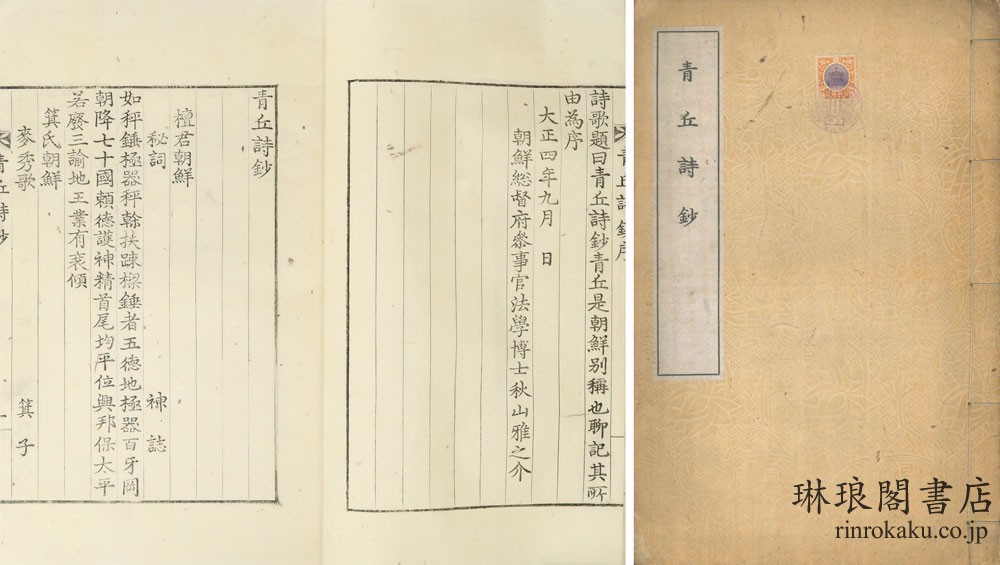 青丘詩鈔
青丘詩鈔序
詩歌題曰青丘詩鈔青丘是朝鮮別稱也聊記其所
由為序
大正四年九月 日
朝鮮総督府叅事官法學博士秋山雅之介
青丘詩鈔
檀君朝鮮
秘詞 神誌
如秤錘極器秤榦扶踈樑錘者五德地極器百牙岡
朝降七十國賴德護神精首尾均平位興邦保太平
若廢三諭地王業有衰傾
箕氏朝鮮
麥秀歌 箕子
青丘詩鈔 一
琳琅閣書店
rinrokaku.co.jp